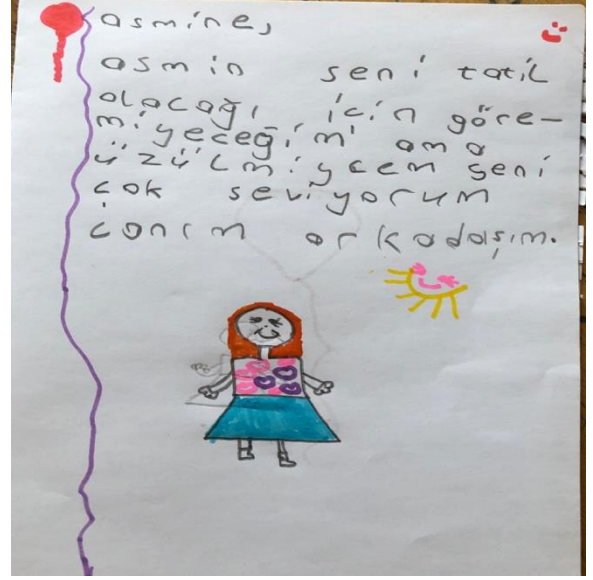 asmine,
asmin seni tatil
olacağı için göre-
miyeceğim ama
üzülmiycem seni
çok seviyorum
canım arkadaşım.